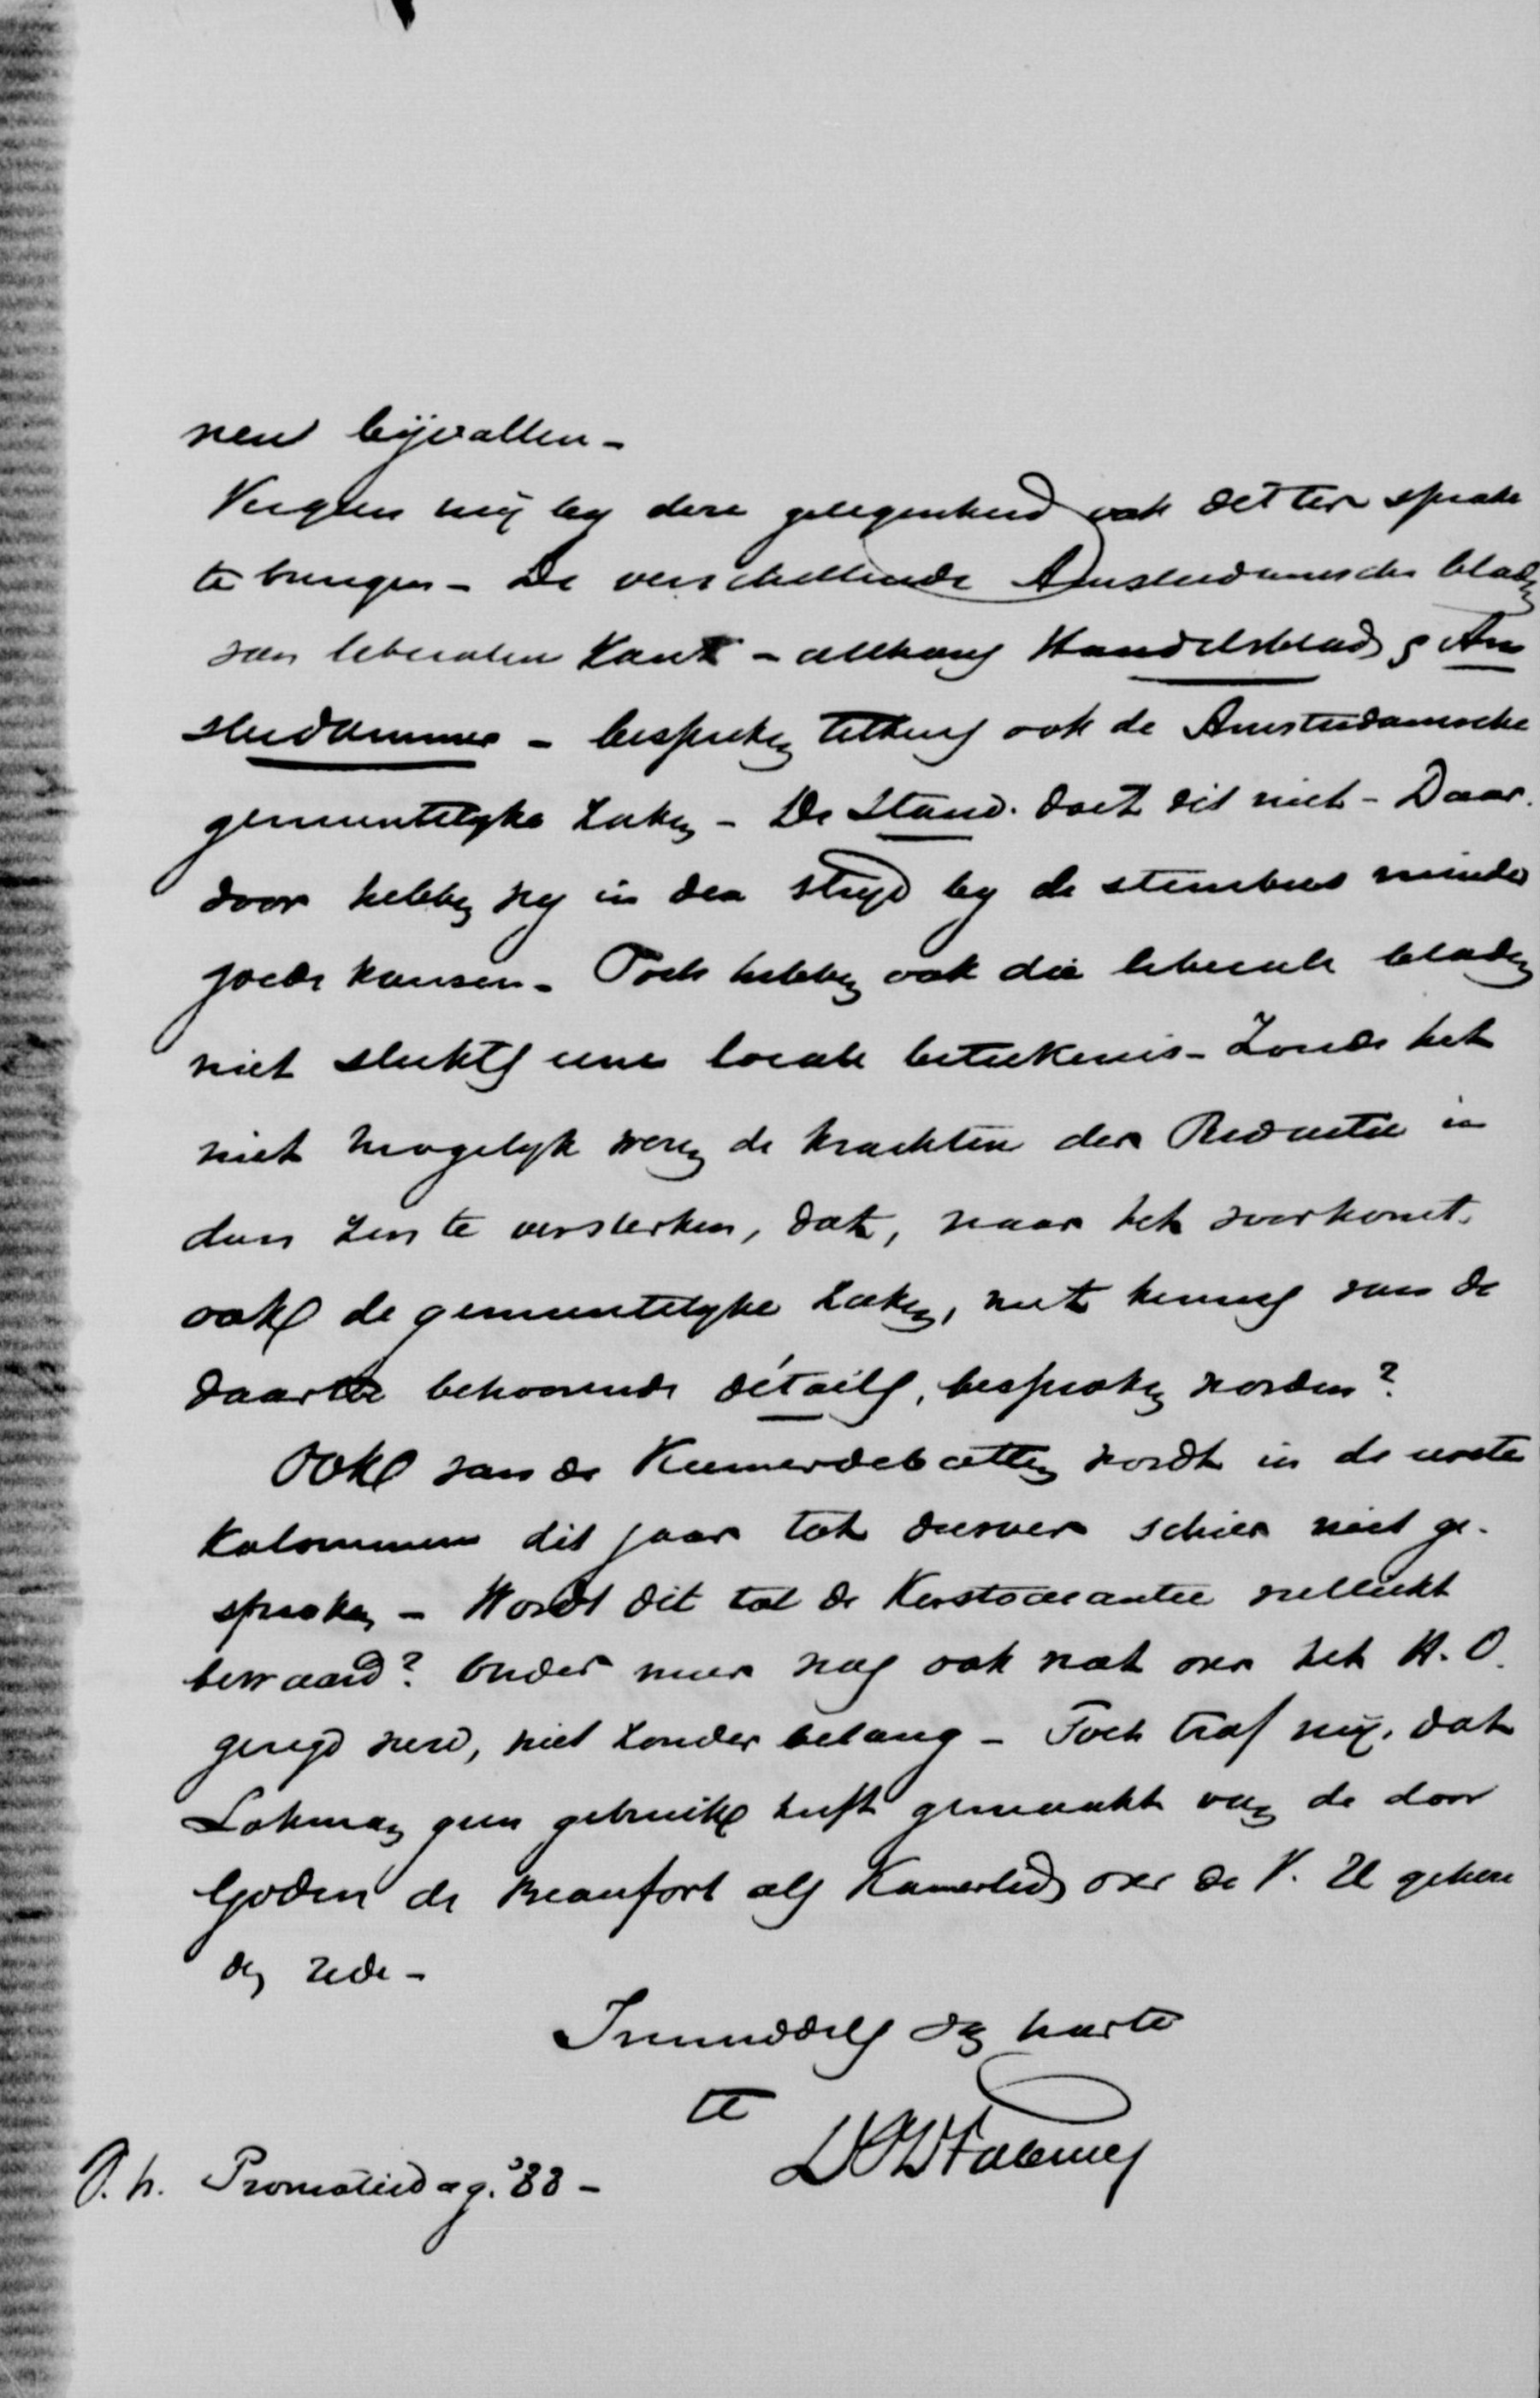 nen bijvallen -
Vergun mij by deze gelegenheid ook dit ter sprake
te brengen - De verschillende Amsterdamsche bladen
van liberalen kant - althans Handelsblad & Am
sterdammer - bespreken telkens ook de Amsterdamsche
gemeentelyke zaken - De Stand. doet dit niet - Daar
door hebben wy in den stryd by de stembus minder
goede kansen - Toch hebben ook die liberale bladen
niet slechts eene locale beteekenis - Zoude het
niet mogelyk wezen de krachten der Redactie in
dien zin te versterken, dat, waar het voorkomt,
ook de gemeentelyke zaken, met kennis van de
daartoe behoorende détails, besproken worden?
Ook van de Kamerdebatten wordt in de eerste
kolommen dit jaar tot dusver schier niet ge-
sproken - Wordt dit tot de Kerstvacantie wellicht
bewaard? Onder meer was ook wat over het H.O.
gezegd werd, niet zonder belang - Toch trof mij, dat
Lohman geen gebruik heeft gemaakt van de door
de Beaufort als Kamerlid over de V.U. gehou
den rede -
Inmiddels van harte
tt
DPDFabius
A. h. Promotiedag. '88 -